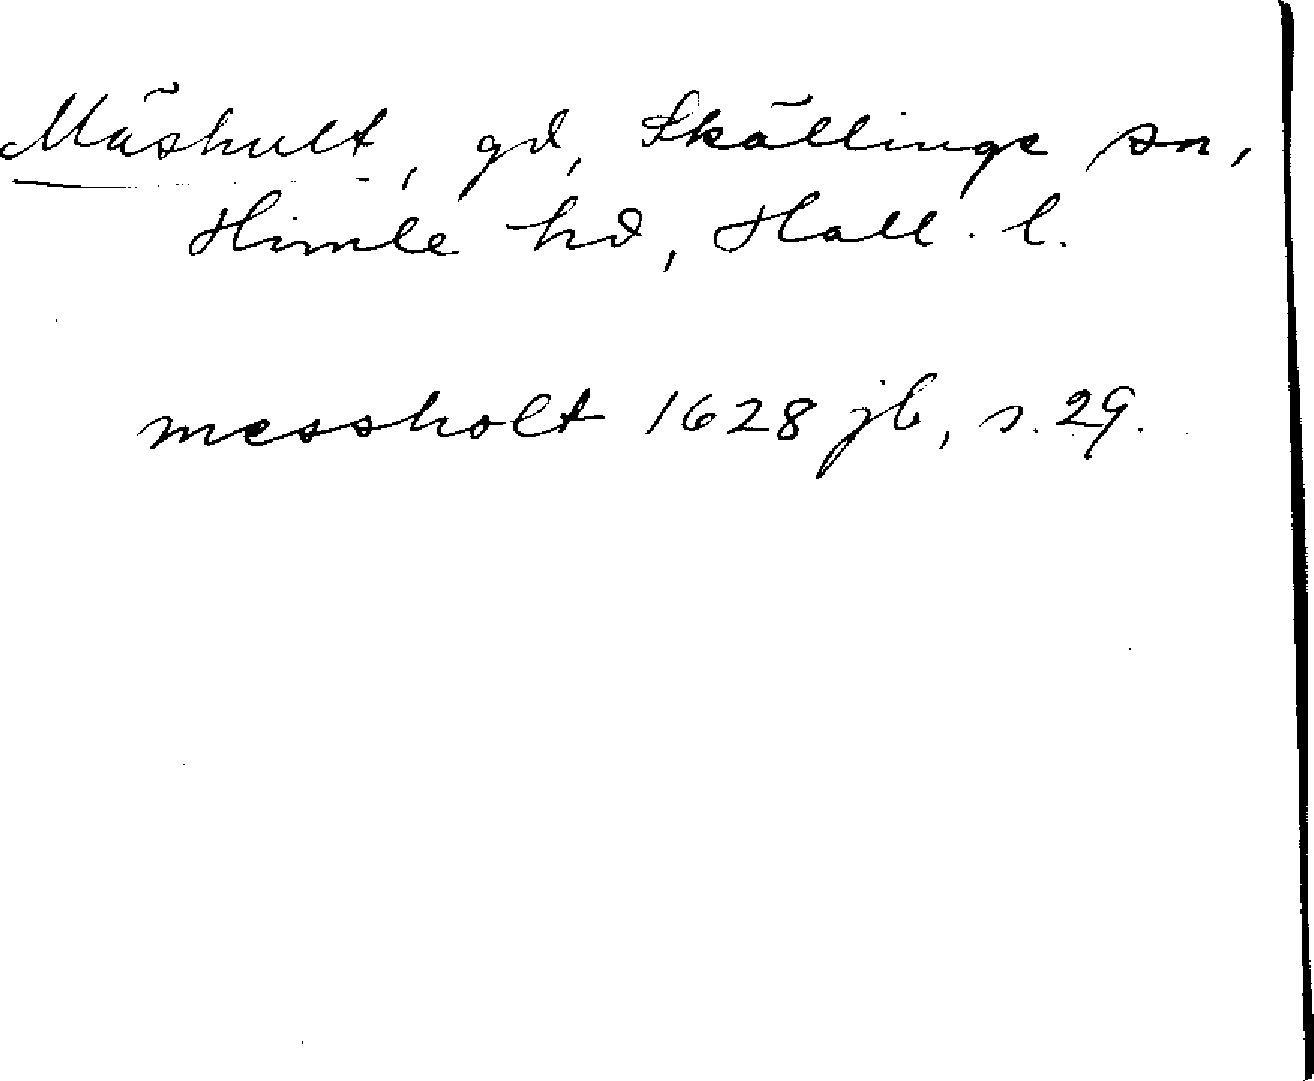 Mäshult, gd, Skällinge sn,
Himle hd, Hall. l.
messholt 1628 jb, s. 29.